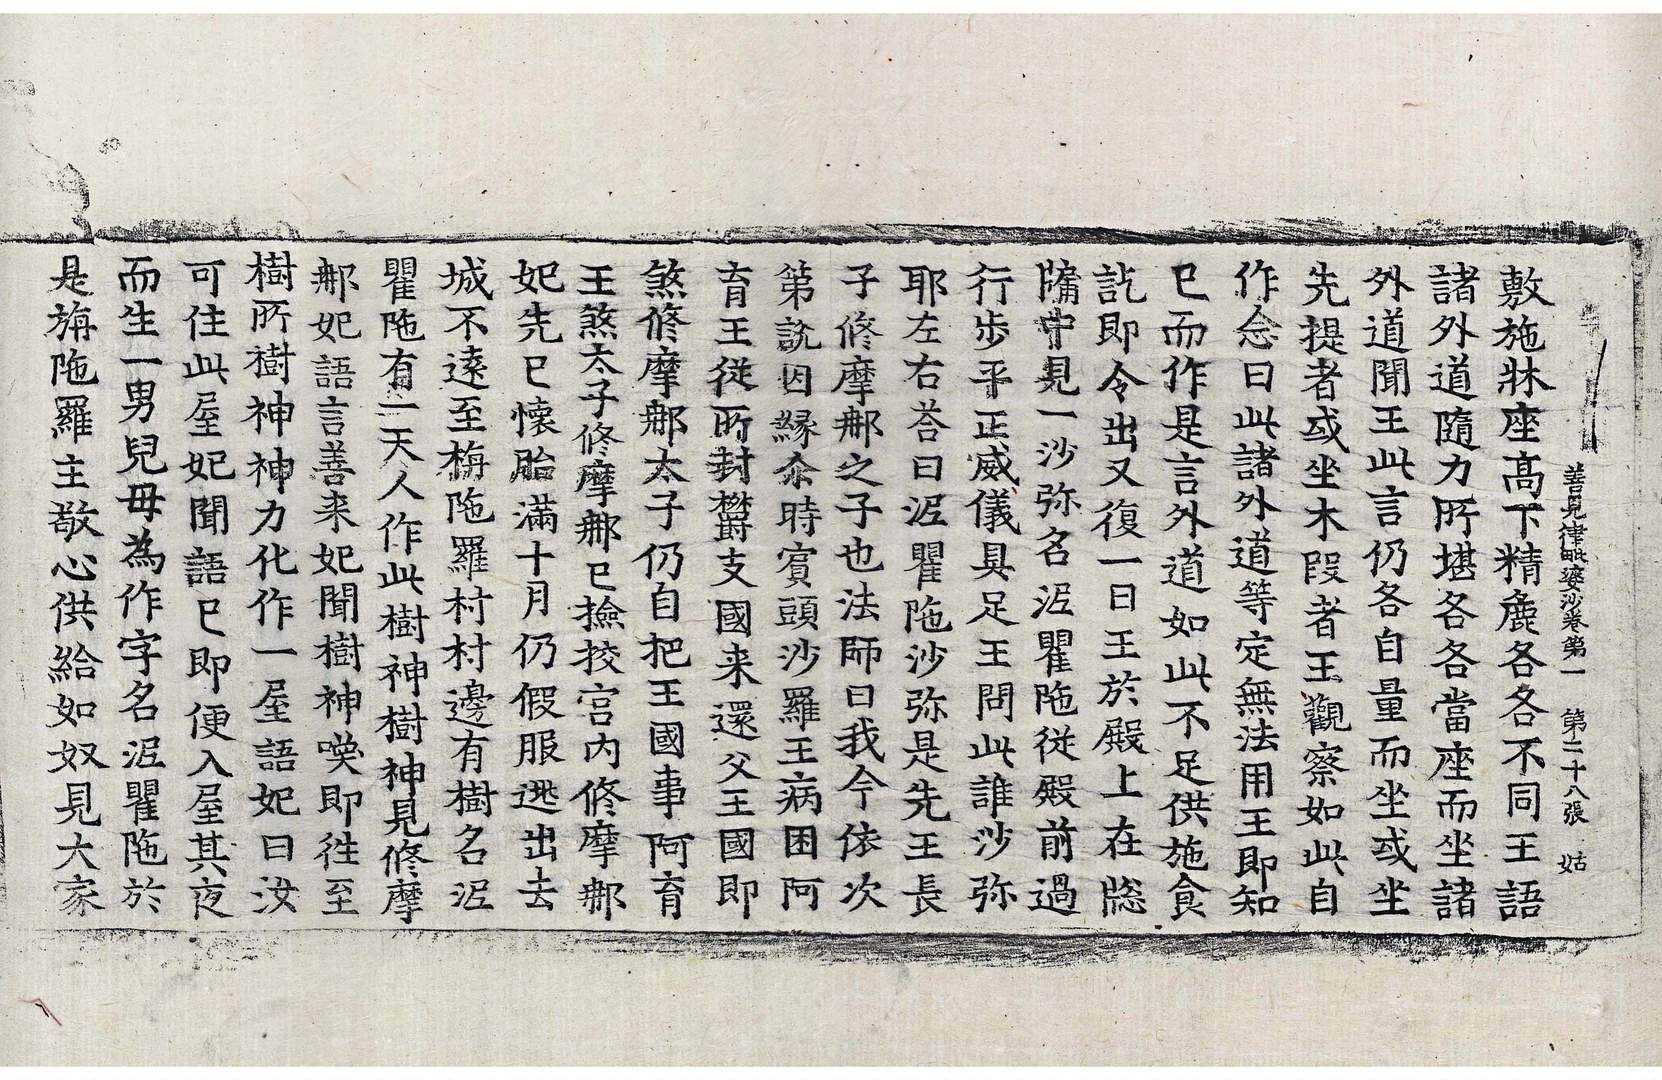 善見律毗婆沙卷第一　第二十八張　姑
敷施牀座高下精麁各各不同王語
諸外道隨力所堪各各當座而坐諸
外道聞王此言仍各自量而坐或坐
先提者或坐木段者王觀察如此自
作念曰此諸外道等定無法用王即知
已而作是言外道如此不足供施食
訖即令出又復一日王於殿上在牎
牖中見一沙弥名泥瞿陁從殿前過
行步平正威儀具足王問此誰沙弥
耶左右荅曰泥瞿陁沙弥是先王長
子修摩那之子也法師曰我今依次
第說因緣尒時賓頭沙羅王病困阿
育王從所封欝支國来還父王國即
煞修摩那太子仍自把王國事阿育
王煞太子修摩那已撿挍宮内修摩那
妃先已懷胎滿十月仍假服逃出去
城不遠至栴陁羅村村邊有樹名泥
瞿陁有一天人作此樹神樹神見修摩
那妃語言善来妃聞樹神喚即往至
樹所樹神神力化作一屋語妃曰汝
可住此屋妃聞語已即便入屋其夜
而生一男兒母為作字名泥瞿陁於
是旃陁羅主敬心供給如奴見大家